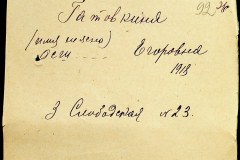 92
Гатовкина
(имя неясно)
Оси..... Егоровна
1918
3 Слободская № 23.